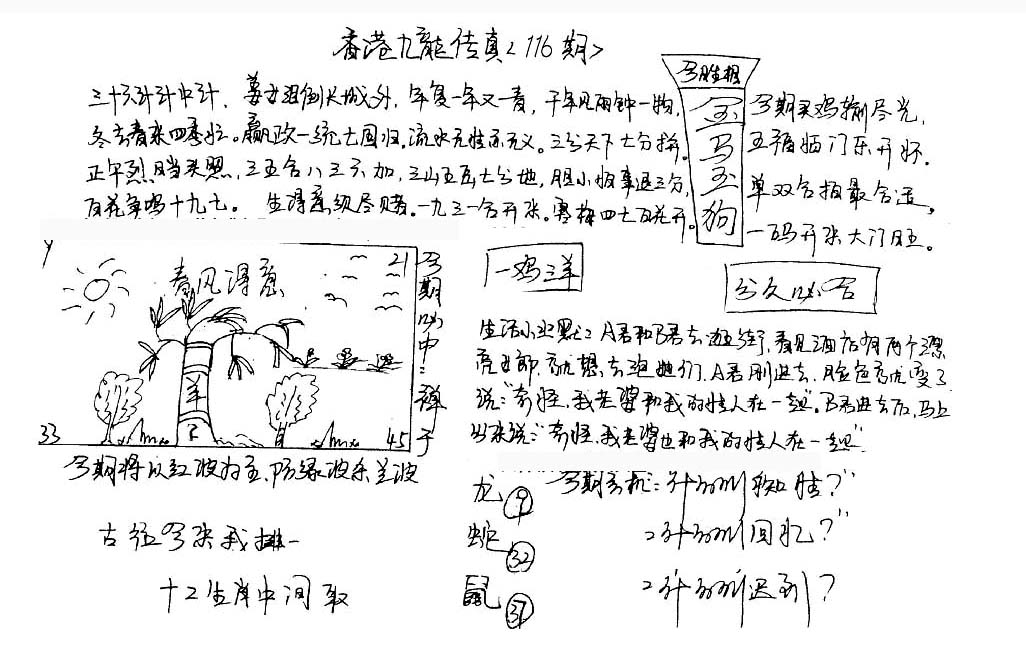 香港九龍传真<116期>
三十六计计中计, 姜女泪倒长城外, 年复一年又一春, 千年风雨钟一物,
冬去春来四季忙。嬴政一统七国归, 流水无情亦无义。三分天下七分拼。
正午烈日当头照, 三五合八三六加, 三山五岳七分地, 胆小怕事退三分,
百花争鸣十九七。 生得意须尽赌。一九三一合开张。寒梅四七百花开。
今胜相
金
马
玉
狗
今期买鸡输尽光,
五福临门乐开怀.
单双合拍最合适,
一码开张大门旺。
春风得意
21
33
45
羊
今期必中:禅子
一鸡三羊
分久必合
生活小幽默: A君和B君去逛街, 看见酒店有两个漂
亮女郎, 就想去泡她们, A君刚进去, 脸色就变了
说:"奇怪, 我老婆和我的情人在一起". B君进去后, 马上
出来说:"奇怪, 我老婆也和我的情人在一起"
今期将以红波为主, 防绿波杀兰波
古往今来我排一
十二生肖中间取
龙 9
蛇 32
鼠 37
今期玄机:
回忆?"
迟到?